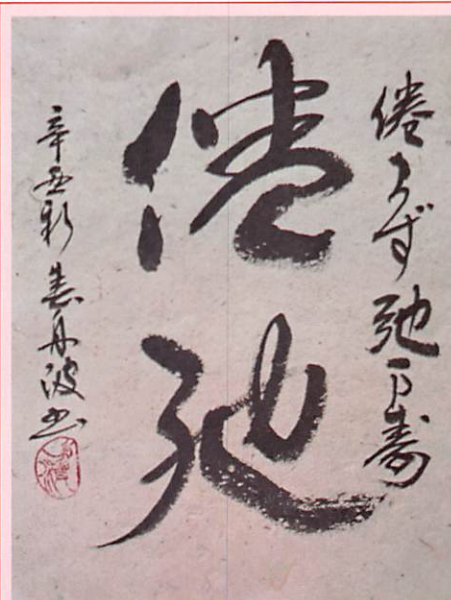 倦まず弛万寿
倦弛
辛亥新春丹波書